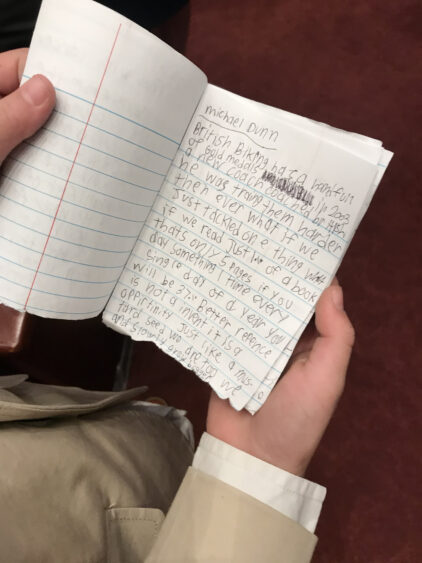 michael Dunn
British Biking had a handfull
of gold meddls in 2003
a new coach
he was traing them harder
then ever what if we
Just tackled one thing
if we read Just 1% of a book
that's only 5 pages if you
day something 1 time every
single day of a year you
will be 37% Better
is not a invent it is a
Just like a mus
tard seed we
and slowly